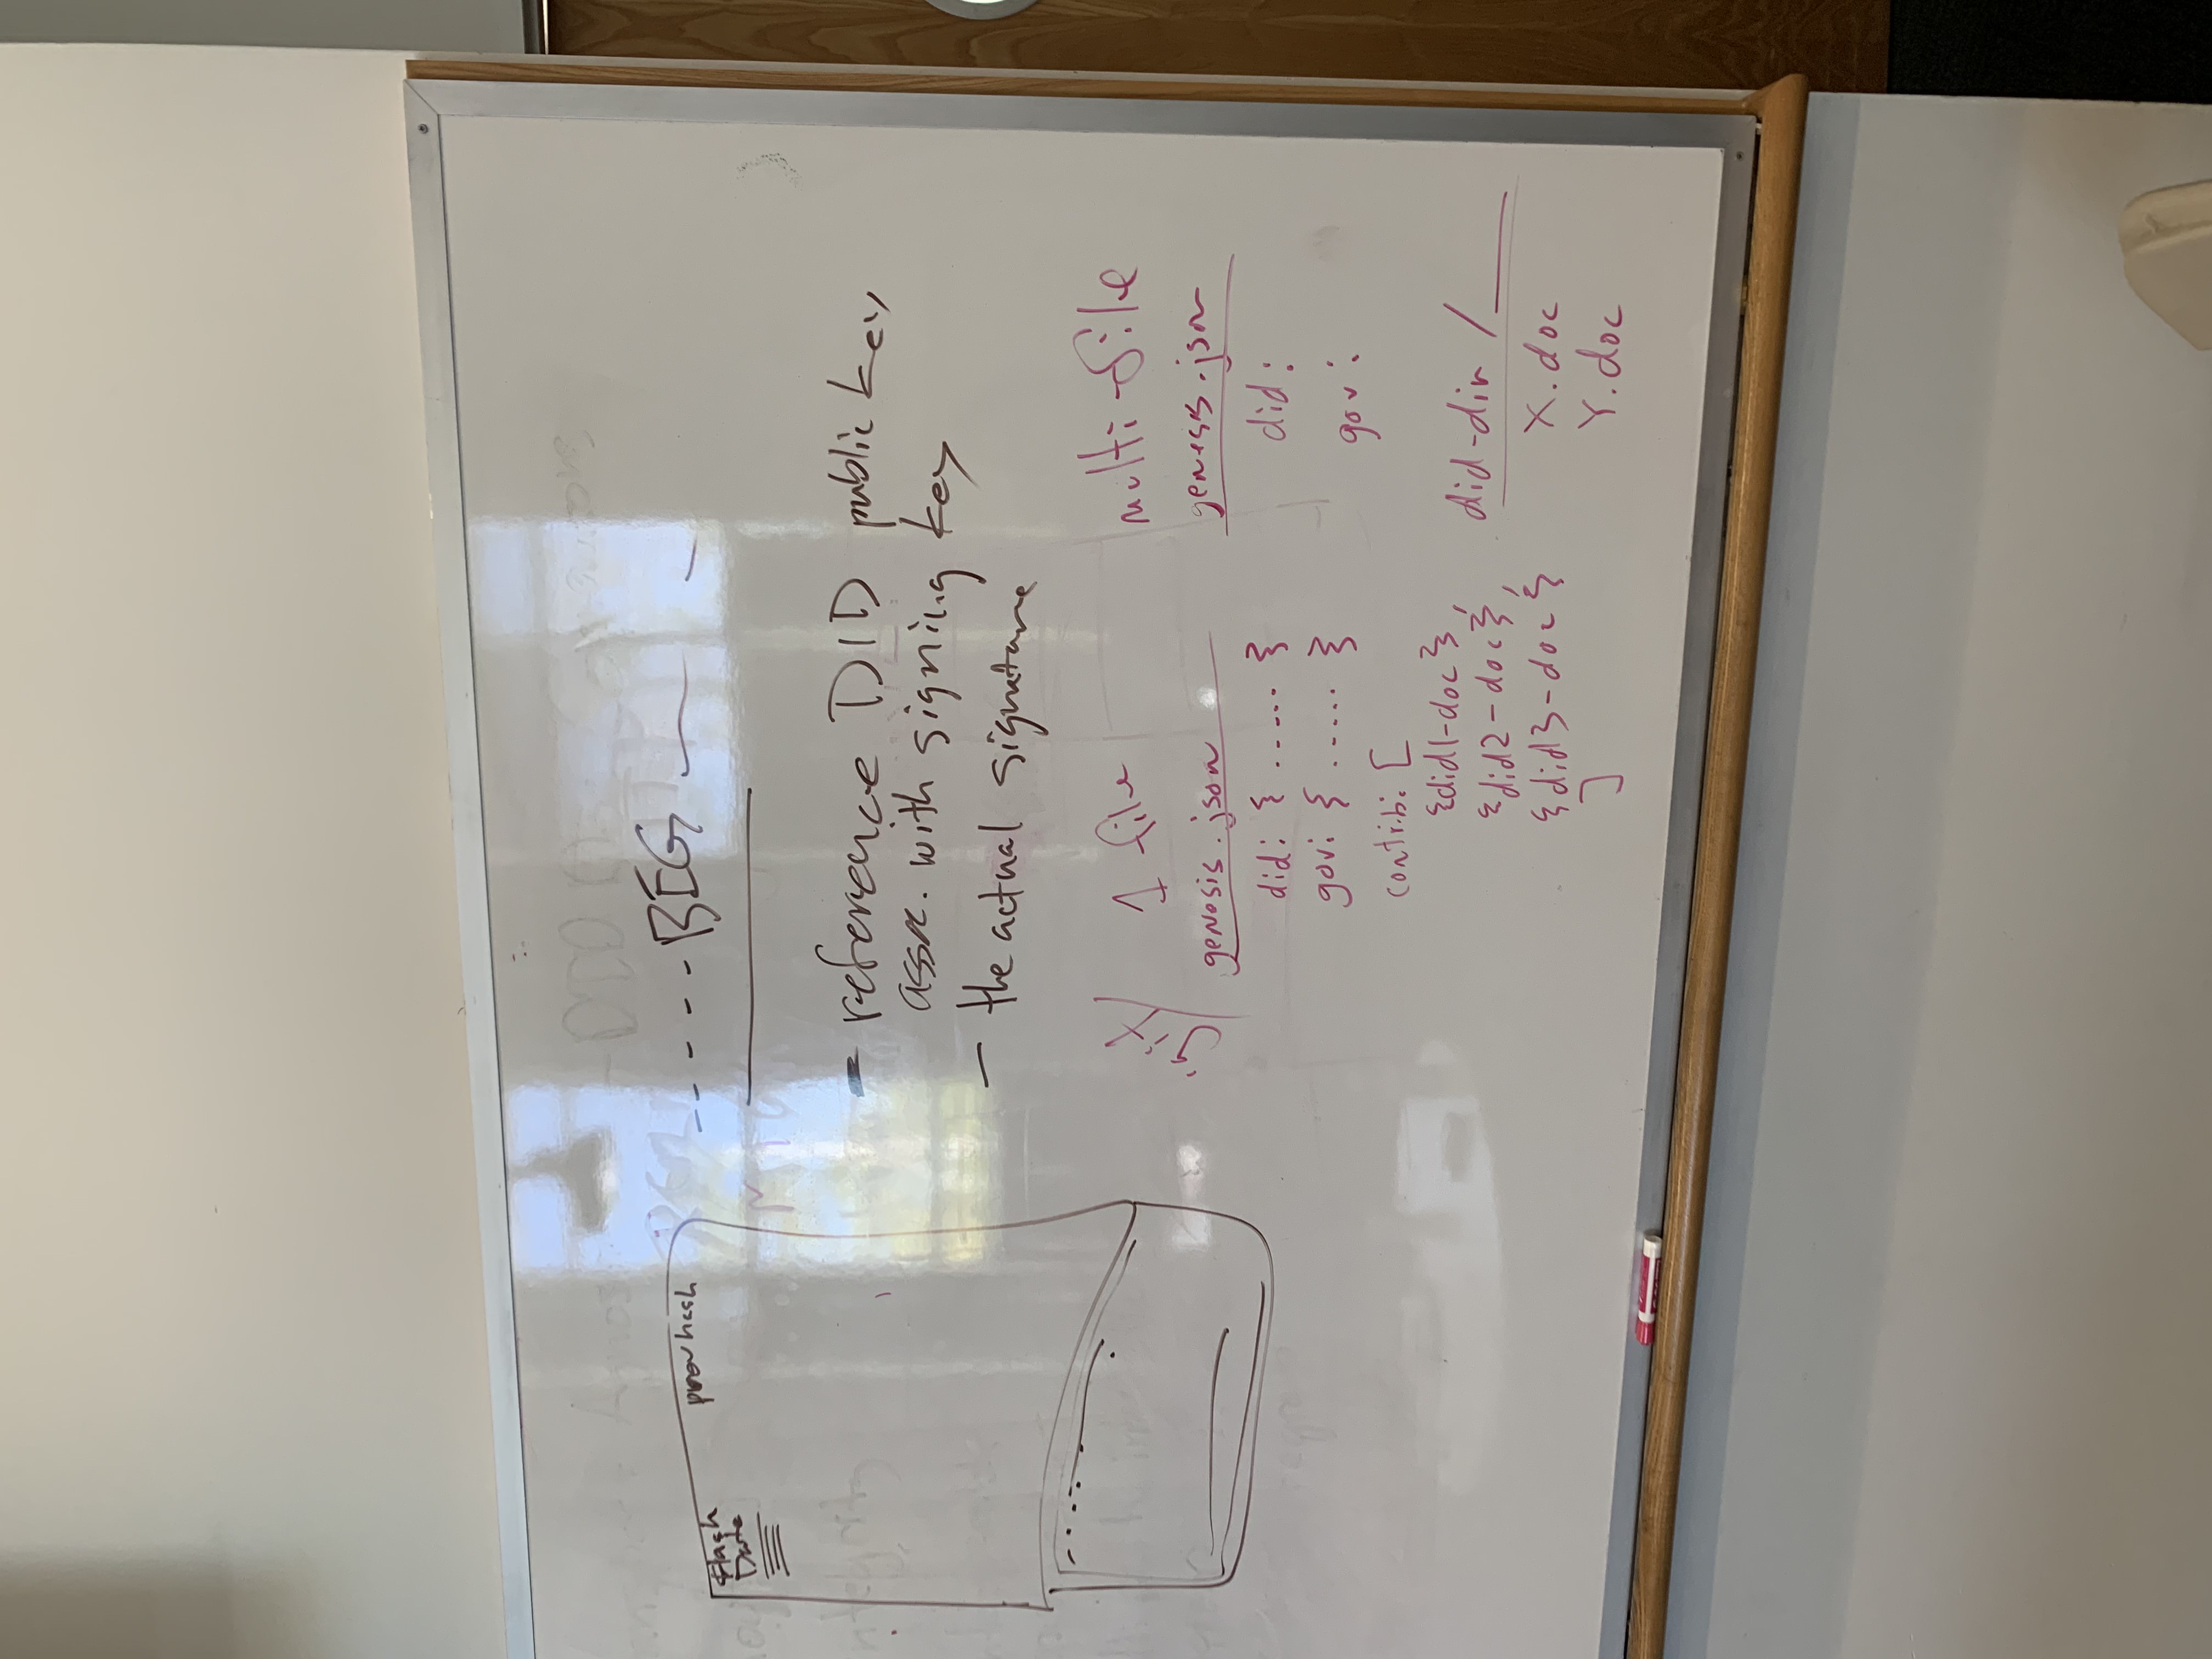 prev hash
Hash
Date
- - - - - BEG — —
- reference DID public key
assoc. with signing key
- the actual signature
.git/
1 file
genesis.json
did: { ...... }
gov: { ...... }
contrib: [
{did1-doc},
{did2-doc},
{did3-doc}
]
multi-file
genesis.json
did:
gov:
did-dir /____
X.doc
Y.doc